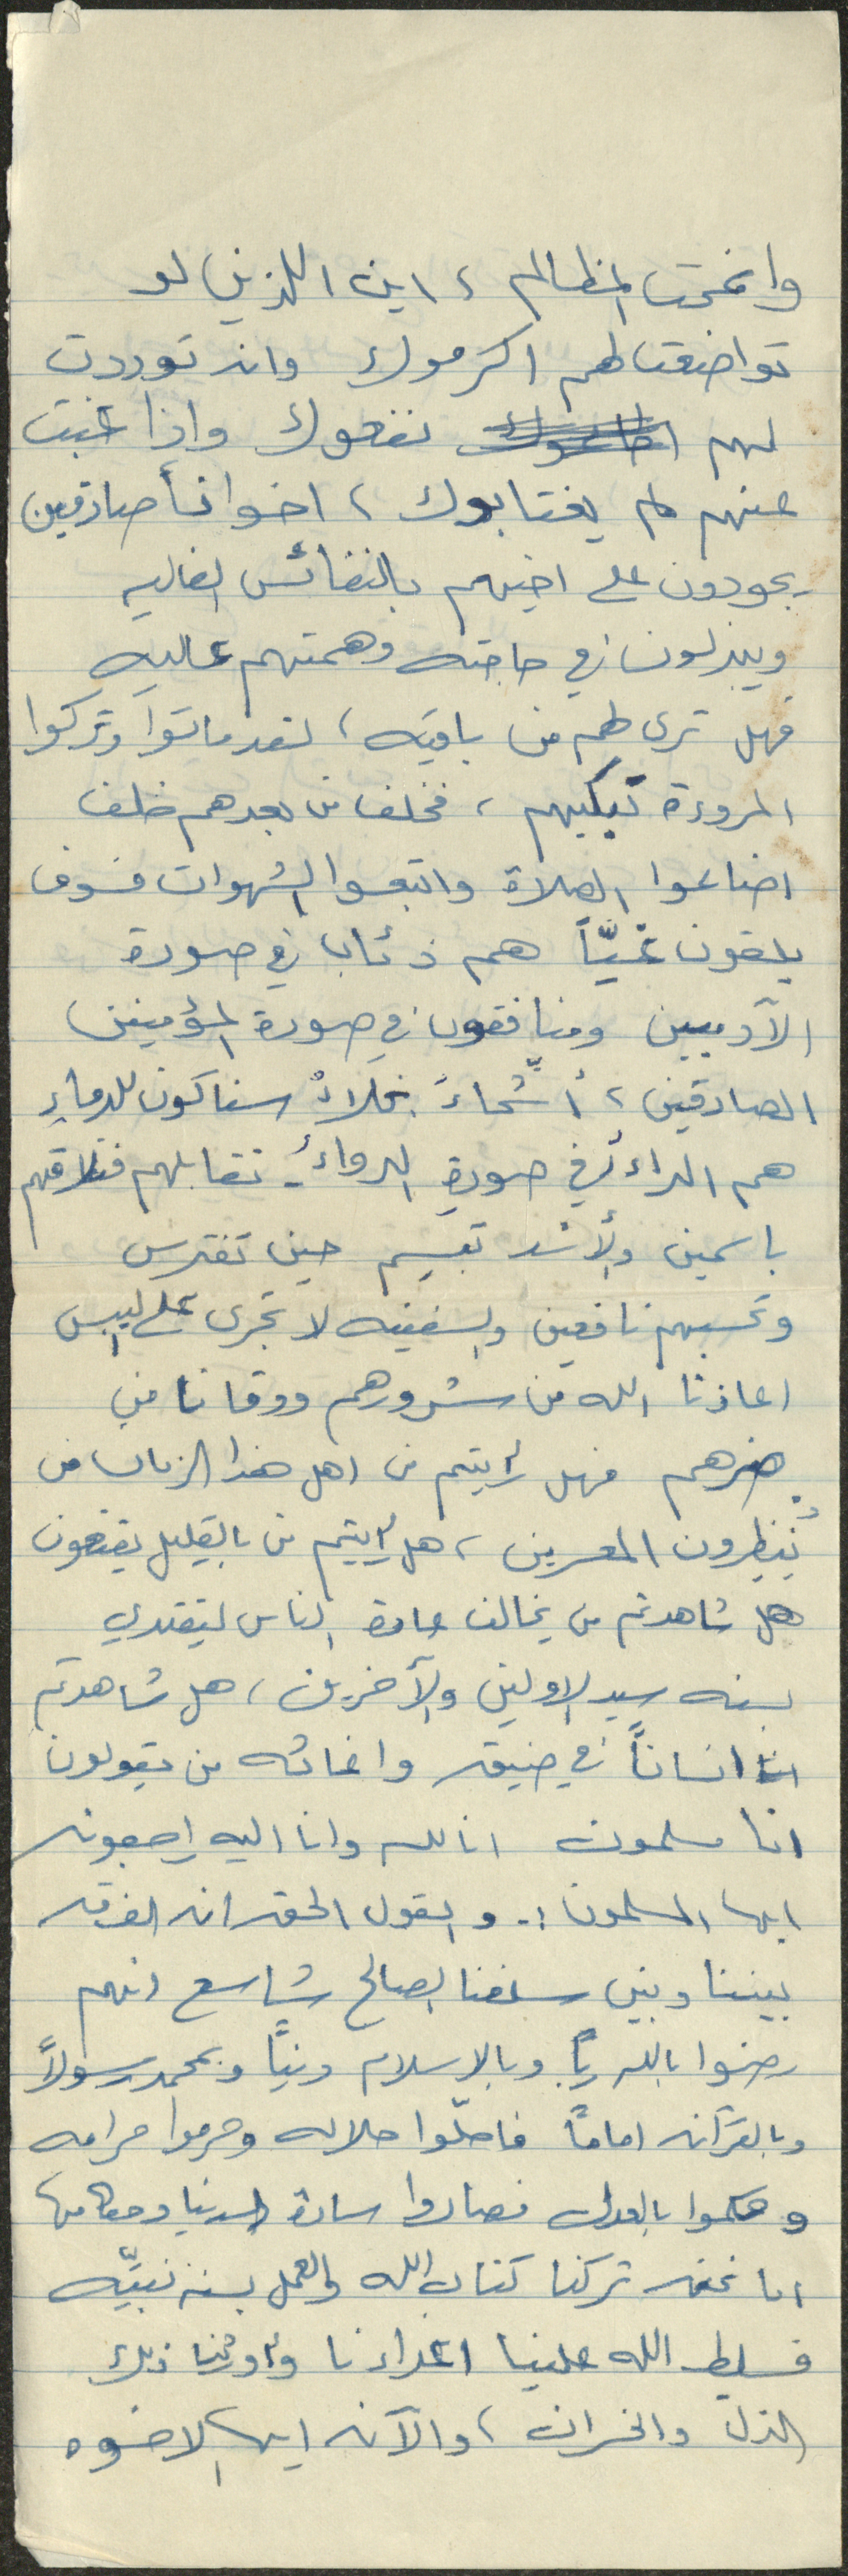 وانمحت المظالم، اين اللذين لو
تواضعت لهم اكرموك وان توددت
لهم نفعوك واذا غبت
عنهم لم يغتابوك، اخواناً صادقين
يجودون على اخيهم بالنفائس الغاليه
ويبذلون في حاجته وهمتهم عاليه
فهل ترى لهم من باقيه، لقد ماتوا وتركوا
المروءة تبكيهم، فخلف من بعدهم خلف
اضاعوا الصلاة واتبعوا الشهوات فسوف
يلقون غيّاً هم ذئاب في صورة
الآدميين ومنافقون في صورة المؤمنين
الصادقين، أشّحاءً بخلاءٌ سفاكون للدماءِ
هم الداءُ في صورةِ الدواءُ. تقابلهم فتلاقهم
باسمين والأسد تبسم حين تفترس
وتحسبهم نافعين والسفينه لا تجري على اليبس
اعاذنا الله من شرورهم ووقانا من
ضرهم فهل رأيتم من اهل هذا الزمان من
يُنظِرون المعسرين، هل رأيتم من بالقليل يقنعون
هل شاهدتم من يخالف عادة الناس ليقتدي
بسنه سيد الاولين والآخرين، هل شاهدتم
انساناً في ضيق واغاثه من يقولون
انا مسلمون انا لله وانا اليه راجعون
ايها المسلمون :. والقول الحق ان الفرق
بيننا وبين سلفنا الصالح شاسع انهم
رضوا بالله رباً وبالاسلام ديناً وبمحمد رسولاً
وبالقرآن اماماً فاحلّوا حلاله وحرموا حرامه
وحكموا بالعدل فصاروا سادة الدنيا وحكامها
اما نحن تركنا كتاب الله والعمل بسنة نبيّه
فسلط الله علينا اعداءنا وأورثنا ذلك
الذل والخسران، والآن ايها الاخوه